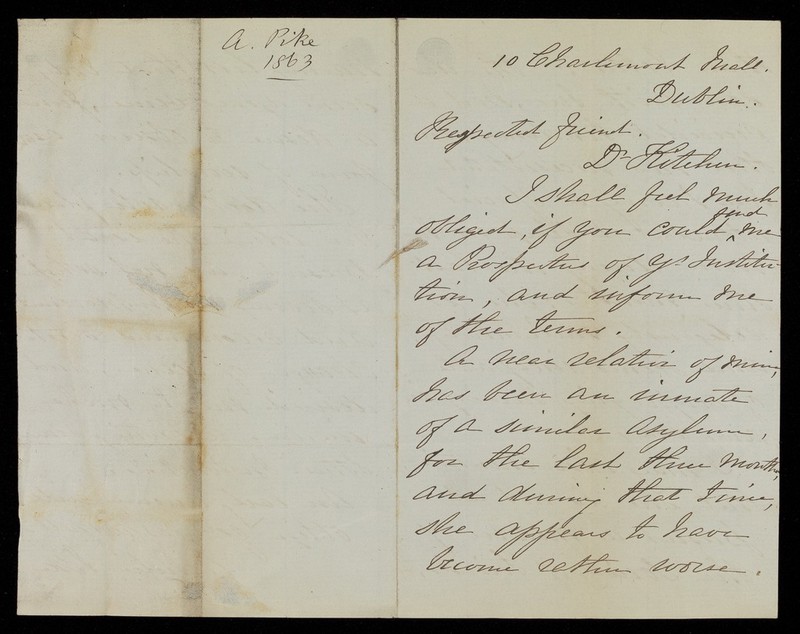 A. Pike
1863
10 Charlemont Mall.
Dublin.
Respected friend.
Dr Kitchen.
I shall feel much
obliged, if you could send me
a Prospectus of yr Institu-
tion, and inform me
of the terms.
A near relative of mine,
has been an inmate
of a similar Asylum,
for the last three months,
and during that time,
she appears to have
become rather worse.